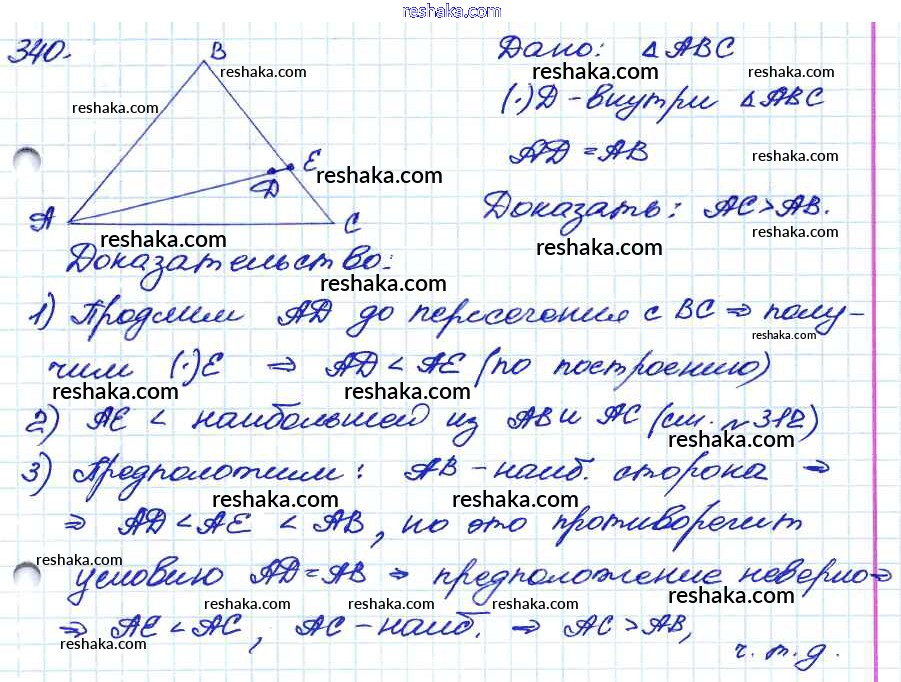 reshaka.com
340.
B
reshaka.com
reshaka.com
E
reshaka.com
D
A
C
reshaka.com
Дано: △ABC
reshaka.com
reshaka.com
(·)D - внутри △ABC
AD = AB
reshaka.com
Доказать: AC > AB.
reshaka.com
reshaka.com
Доказательство:
reshaka.com
1) Продлим AD до пересечения с BC ⇒ полу-
reshaka.com
чим (·)E ⇒ AD < AE (по построению)
reshaka.com
reshaka.com
2) AE < наибольшей из AB и AC (см. №312)
reshaka.com
3) Предположим: AB - наиб. сторона ⇒
reshaka.com
reshaka.com
⇒ AD < AE < AB, но это противоречит
reshaka.com
условию AD = AB ⇒ предположение неверно ⇒
reshaka.com
reshaka.com
reshaka.com
reshaka.com
⇒ AE < AC, AC - наиб. ⇒ AC > AB,
reshaka.com
ч.т.д.